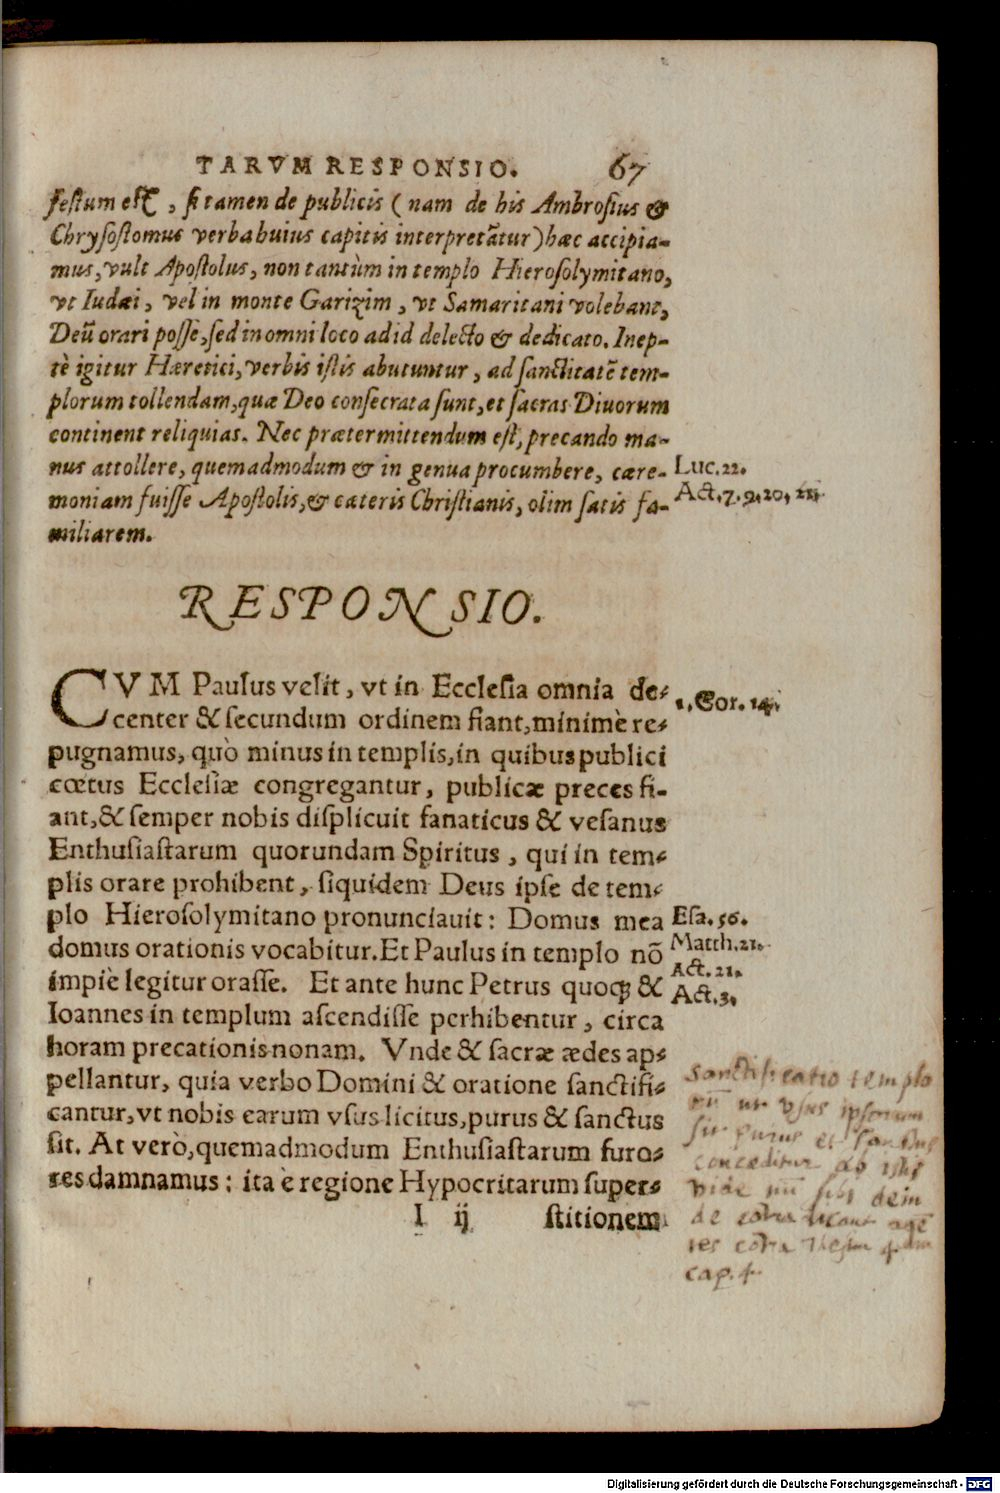 TARVM RESPONSIO. 67
festum est, si tamen de publicis (nam de his Ambrosius &
Chrysostomus verba huius capitis interpretātur) hæc accipia-
mus, vult Apostolus, non tantùm in templo Hierosolymitano,
vt Iudæi, vel in monte Garizim, vt Samaritani volebant,
Deū orari posse, sed in omni loco ad id delecto & dedicato. Inep-
tè igitur Hæretici, verbis istis abutuntur, ad sanctitatē tem-
plorum tollendam, quæ Deo consecrata sunt, et sacras Diuorum
continent reliquias. Nec prætermittendum est, precando ma-
nus attollere, quemadmodum & in genua procumbere, cære-
moniam fuisse Apostolis, & cæteris Christianis, olim satis fa-
miliarem.
Luc. 22.
Act. 7. 9. 20. 21.
RESPONSIO.
CVM Paulus velit, vt in Ecclesia omnia de-
center & secundum ordinem fiant, minimè re-
pugnamus, quò minus in templis, in quibus publici
cœtus Ecclesiæ congregantur, publicæ preces fi-
ant, & semper nobis displicuit fanaticus & vesanus
Enthusiastarum quorundam Spiritus, qui in tem-
plis orare prohibent, siquidem Deus ipse de tem-
plo Hierosolymitano pronunciauit: Domus mea
domus orationis vocabitur. Et Paulus in templo nō
impiè legitur orasse. Et ante hunc Petrus quoq; &
Ioannes in templum ascendisse perhibentur, circa
horam precationis nonam. Vnde & sacræ ædes ap-
pellantur, quia verbo Domini & oratione sanctifi-
cantur, vt nobis earum vsus licitus, purus & sanctus
sit. At verò, quemadmodum Enthusiastarum furo-
res damnamus: ita è regione Hypocritarum super-
I ij stitionem
1. Cor. 14.
Esa. 56.
Matth. 21.
Act. 21.
Act. 3.
Sanctificatio templo
rū ut vsus ipsorum
sit purus et sanctus
conceditur ab istis
vide
de cōtra
cap. 4
Digitalisierung gefördert durch die Deutsche Forschungsgemeinschaft - DFG